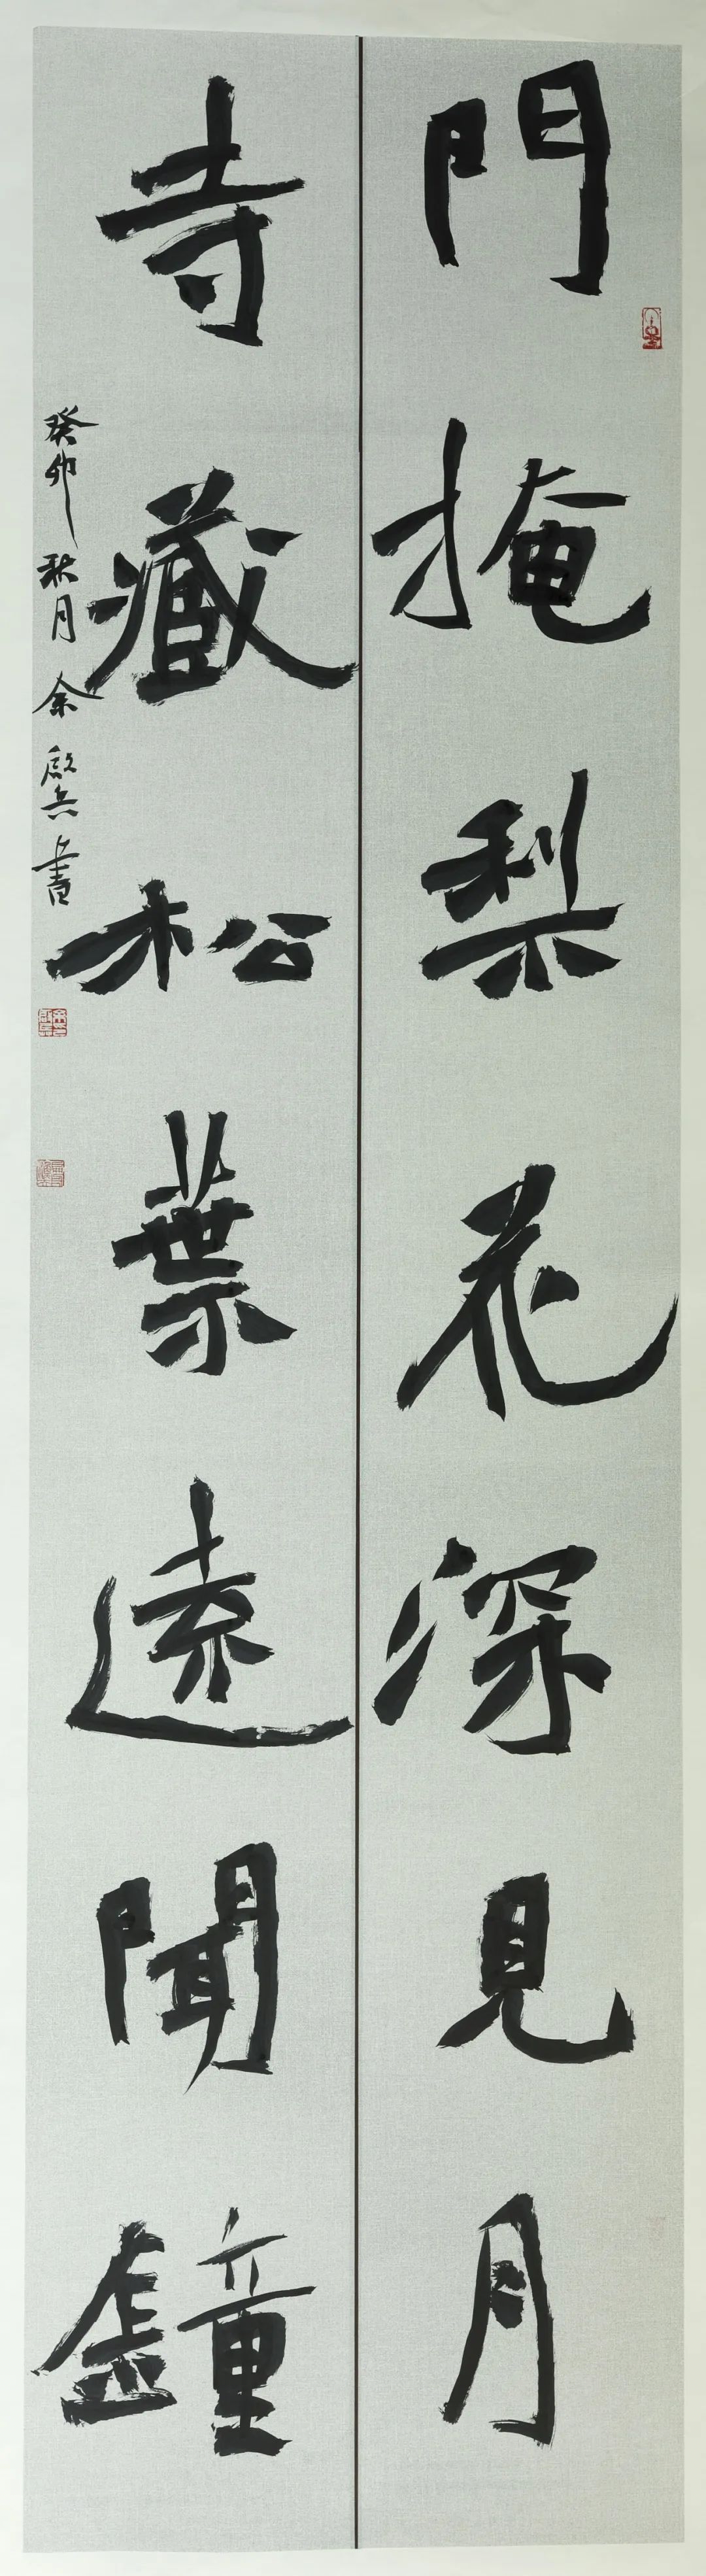 門掩梨花深見月
寺藏松葉遠聞鐘
癸卯秋月余啟兵書